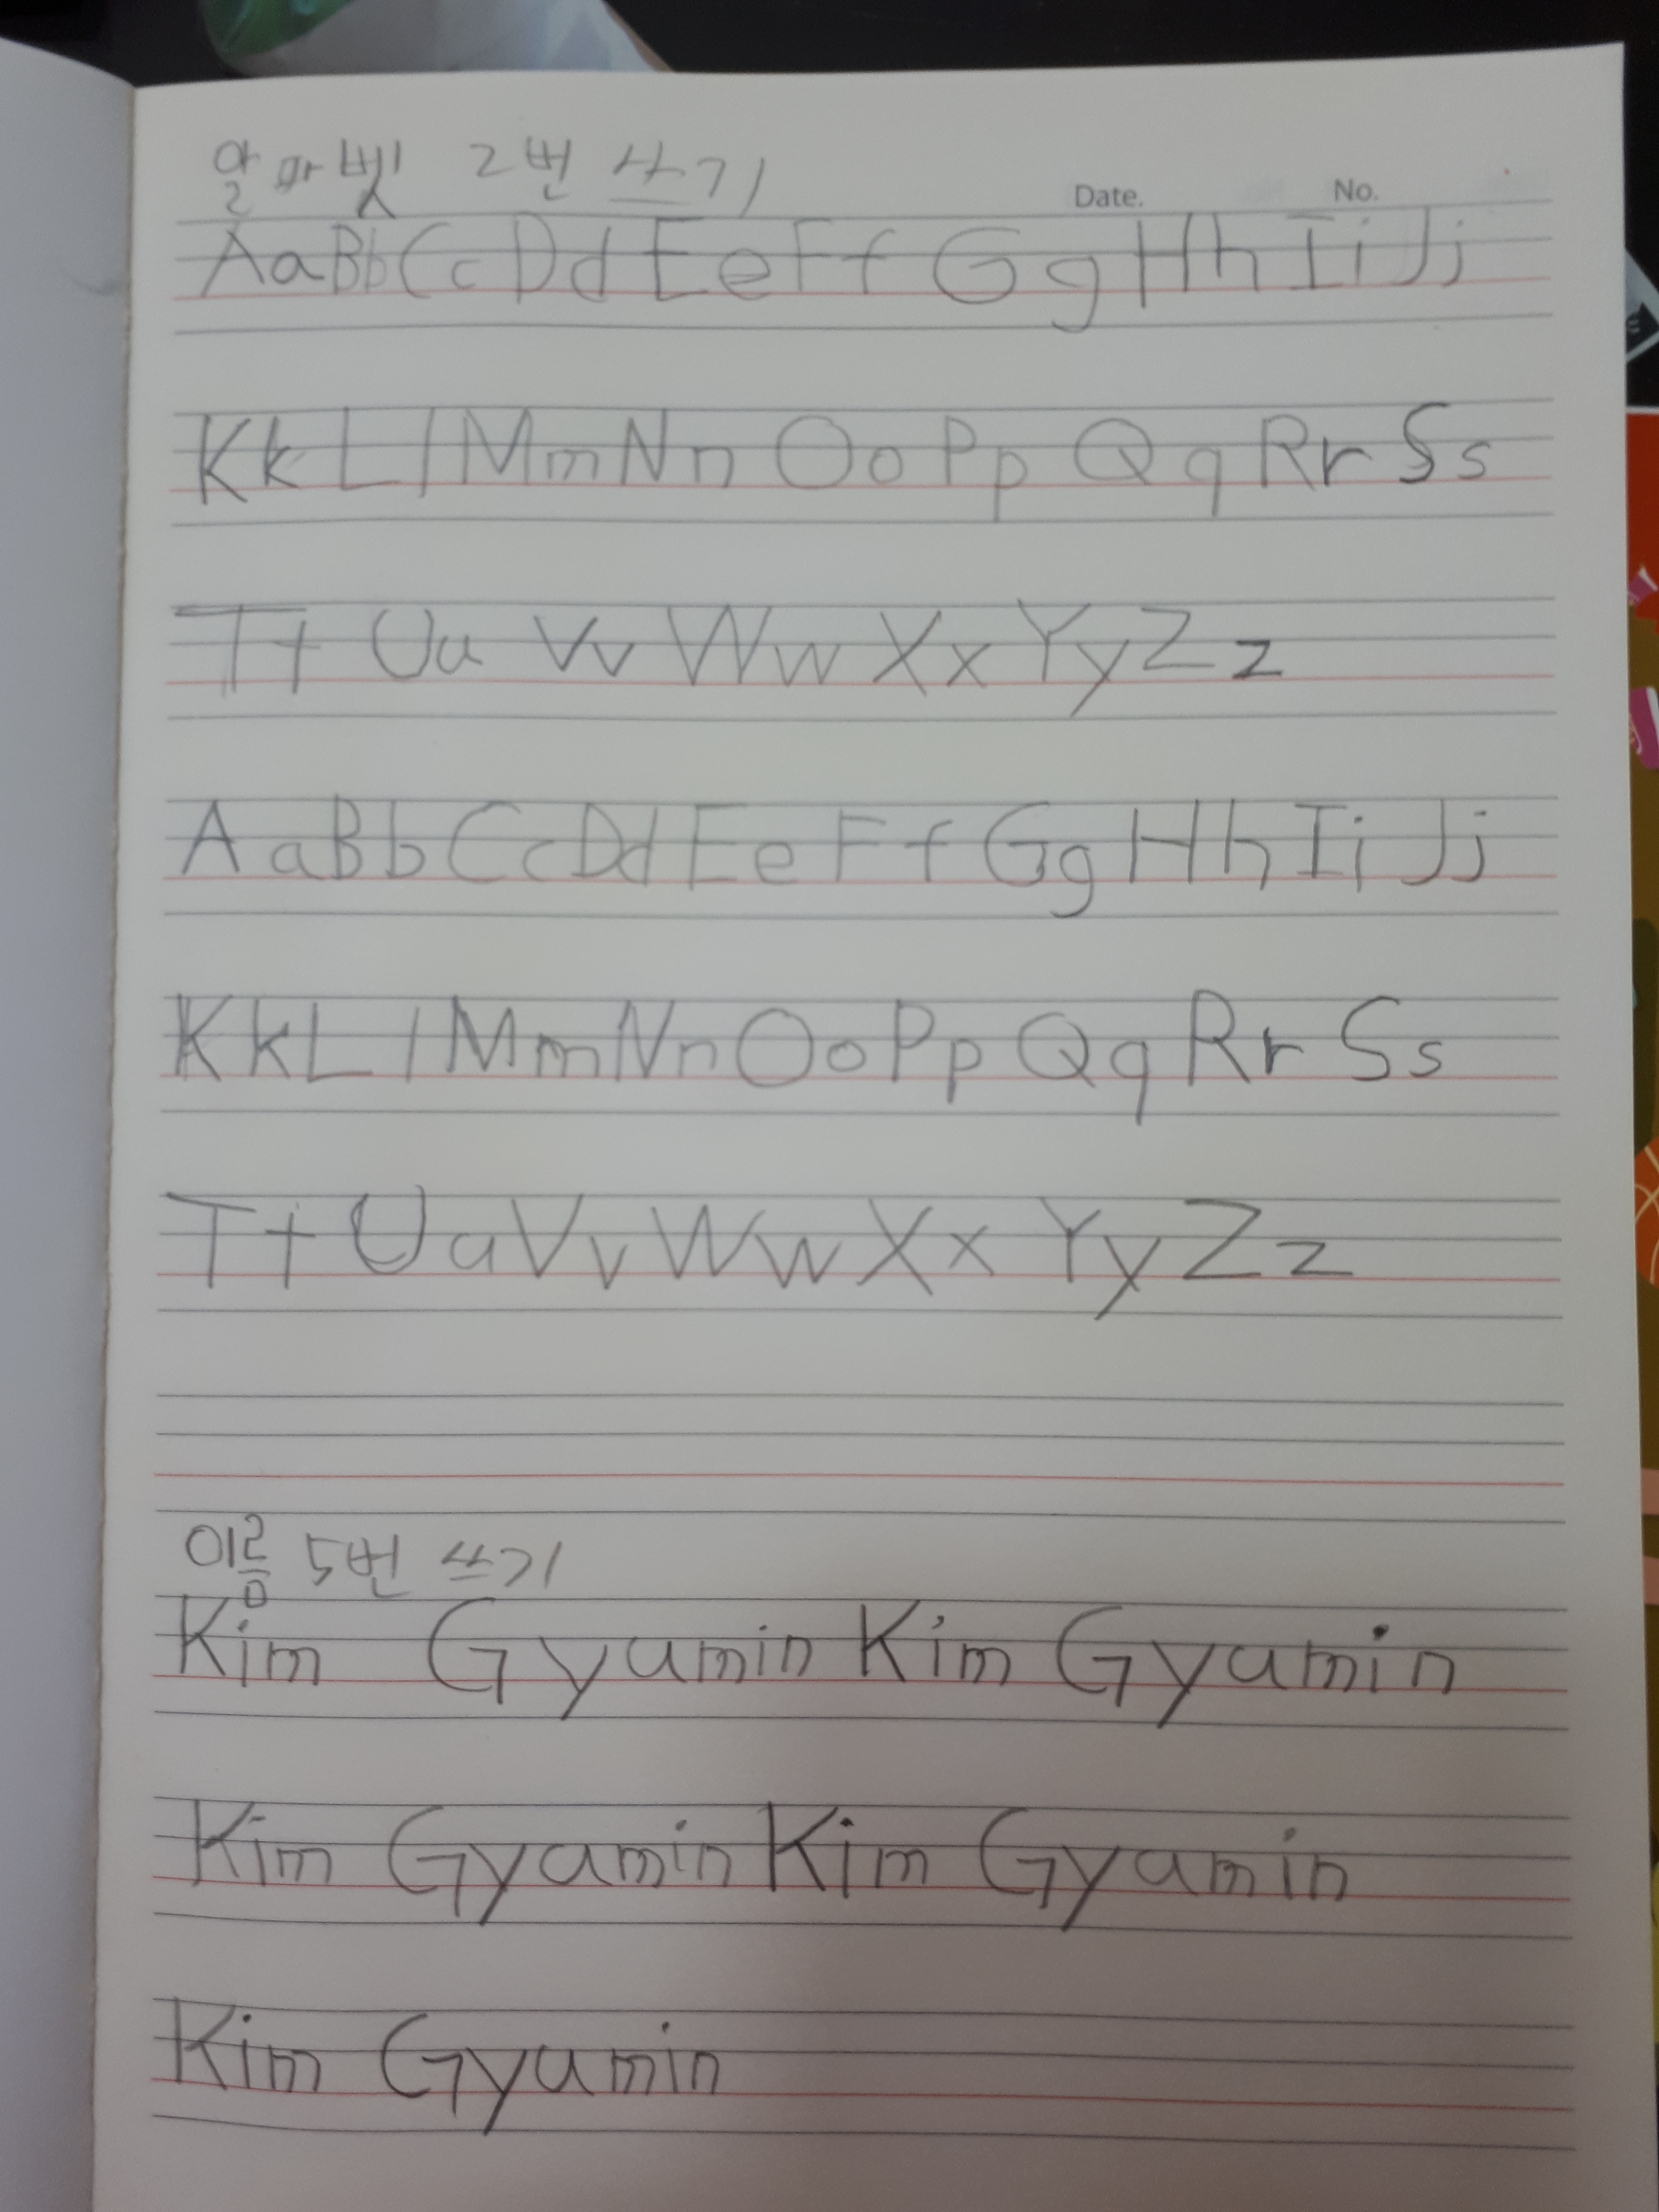 알파벳 2번 쓰기
Date. No.
AaBbCcDdEeFfGgHhIiJj
KkLlMmNnOoPpQqRrSs
TtUuVvWwXxYyZz
AaBbCcDdEeFfGgHhIiJj
KkLlMmNnOoPpQqRrSs
TtUuVvWwXxYyZz
이름 5번 쓰기
Kim Gyumin Kim Gyumin
Kim Gyumin Kim Gyumin
Kim Gyumin